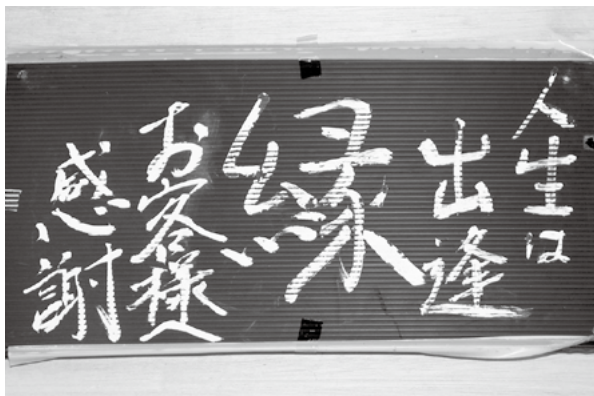 人生は
出逢
縁
お客様へ
感謝